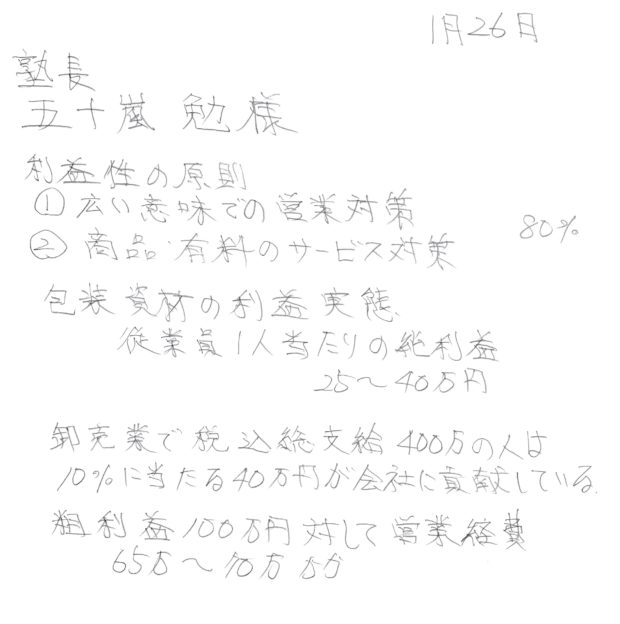 1月26日
塾長
五十嵐 勉様
利益性の原則
① 広い意味での営業対策
② 商品・有料のサービス対策
80%
包装資材の利益実態
従業員1人当たりの純利益
25〜40万円
卸売業で税込総支給400万の人は
10%に当たる40万円が会社に貢献している。
粗利益100万円対して営業経費
65万〜70万